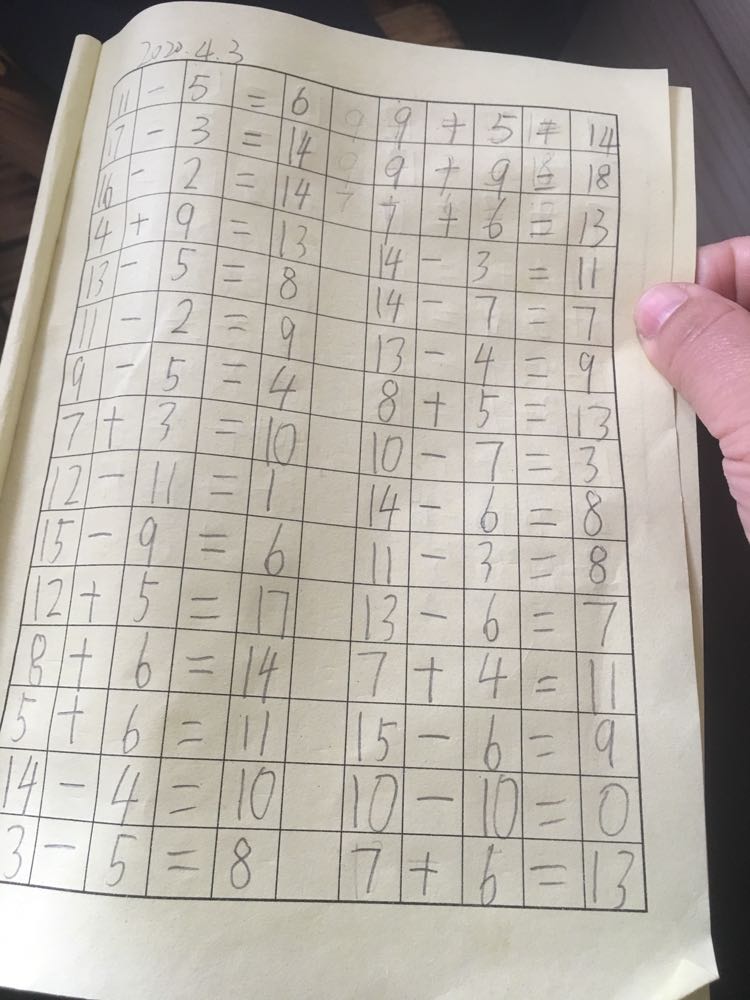 2020.4.3
11 - 5 = 6 9 + 5 = 14
17 - 3 = 14 9 + 9 = 18
16 - 2 = 14 7 + 6 = 13
4 + 9 = 13 14 - 3 = 11
13 - 5 = 8 14 - 7 = 7
11 - 2 = 9 13 - 4 = 9
9 - 5 = 4 8 + 5 = 13
7 + 3 = 10 10 - 7 = 3
12 - 11 = 1 14 - 6 = 8
15 - 9 = 6 11 - 3 = 8
12 + 5 = 17 13 - 6 = 7
8 + 6 = 14 7 + 4 = 11
5 + 6 = 11 15 - 6 = 9
14 - 4 = 10 10 - 10 = 0
3 - 5 = 8 7 + 6 = 13